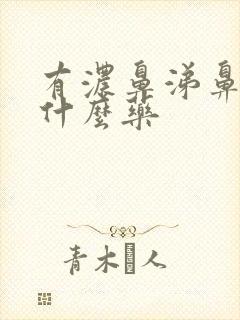 有濃鼻涕鼻
什麼藥
青木 人